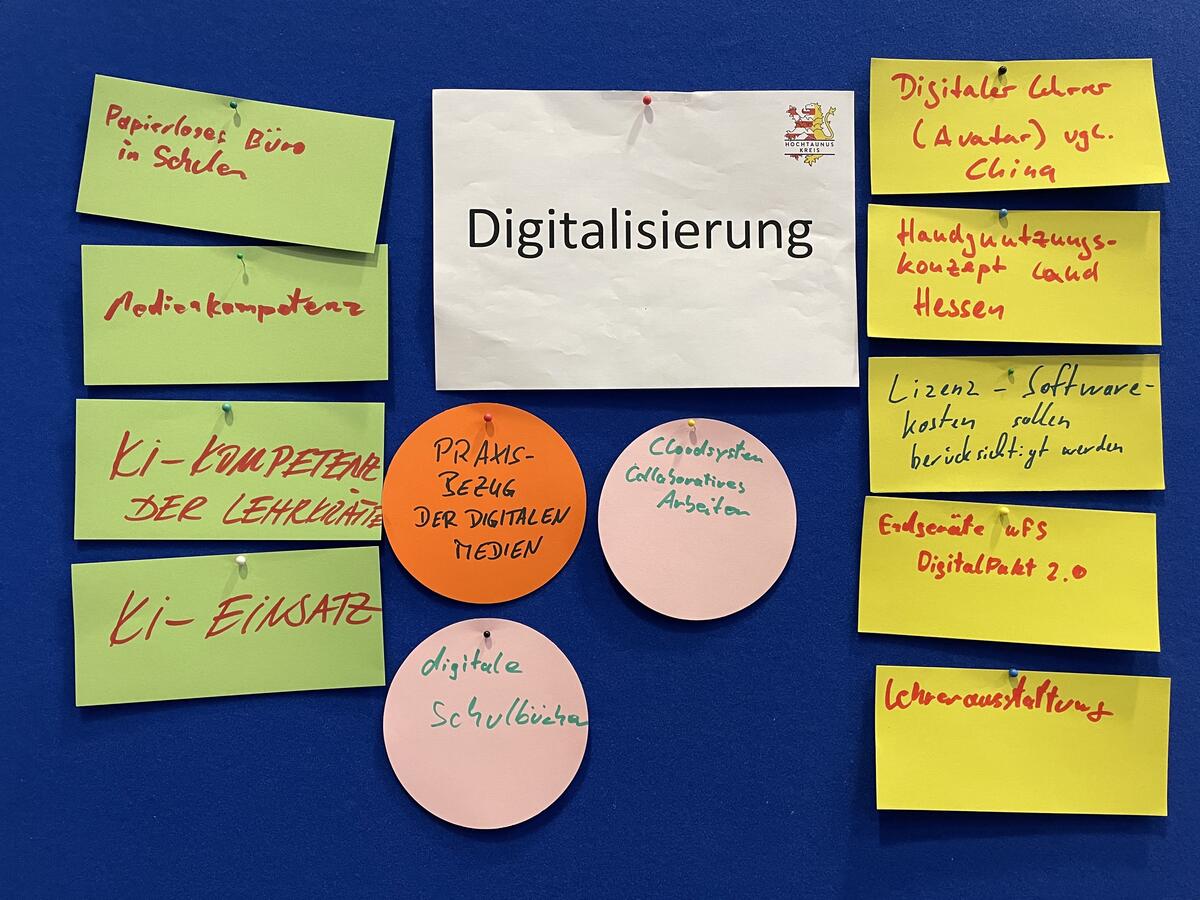 Papierloses Büro
in Schulen
Medienkompetenz
Ki-KOMPETENZ
DER LEHRKRÄFTE
Ki-EiNSATZ
HOCHTAUNUS
KREIS
Digitalisierung
PRAXIS-
BEZUG
DER DIGITALEN
MEDIEN
Cloudsystem
Collaboratives
Arbeiten
digitale
Schulbücher
Digitaler Lehrer
(Avatar) vgl.
China
Handynutzungs-
konzept Land
Hessen
Lizenz - Software-
kosten sollen
berücksichtigt werden
Endgeräte
DigitalPakt 2.0
Lehrerausstattung